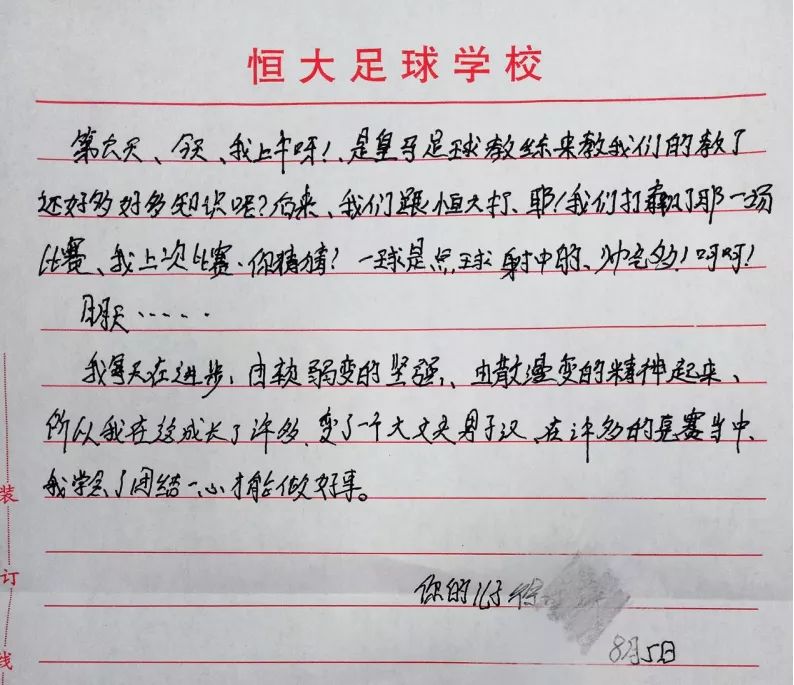 恒大足球学校
第六天、今天、我上午呀!、是皇马足球教练来教我们的教了
还好多好多知识呢?后来、我们跟恒大打、耶!我们打赢了耶一场
比赛、我上次比赛、你猜猜?一球是点球射中的、帅气多!呵呵!
明天·····
我每天在进步,由软弱变的坚强、由散漫变的精神起来、
所以我在这成长了许多,变了一个大丈夫男子汉、在许多的竞赛当中、
我学会了团结一心才能做好事。
你的儿子徐
8月5日
装
订
线